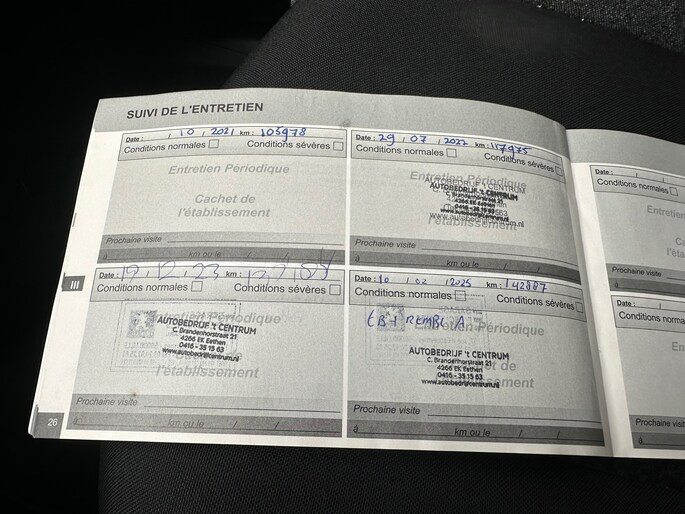 SUIVI DE L'ENTRETIEN
Date : / 10 / 2021 km : 105978
Conditions normales Conditions sévères
Entretien Périodique
Cachet de
l'établissement
Prochaine visite
à km ou le / /
Date : 29 / 07 / 2022 km : 117975
Conditions normales Conditions sévères
Entretien Périodique
AUTOBEDRIJF 't CENTRUM
C. Brandenhorstraat 21
4266 EK Eethen
0416 - 35 15 63
www.autobedrijfcentrum.nl
l'établissement
Prochaine visite
à km ou le / /
III
Date : 19 . 12 . 23 km :
Conditions normales Conditions sévères
Entretien Périodique
AUTOBEDRIJF 't CENTRUM
C. Brandenhorstraat 21
4266 EK Eethen
0416 - 35 15 63
www.autobedrijfcentrum.nl
l'établissement
Prochaine visite
à km ou le / /
Date : 10 / 02 / 2025 km : 142887
Conditions normales Conditions sévères
Entretien Périodique
AUTOBEDRIJF 't CENTRUM
C. Brandenhorstraat 21
4266 EK Eethen
0416 - 35 15 63
www.autobedrijfcentrum.nl
l'établissement
Prochaine visite
à km ou le / /
26
Date : /
Conditions normales
Entretien
Prochaine visite
à
Date : /
Conditions norma
Prochaine visite
à